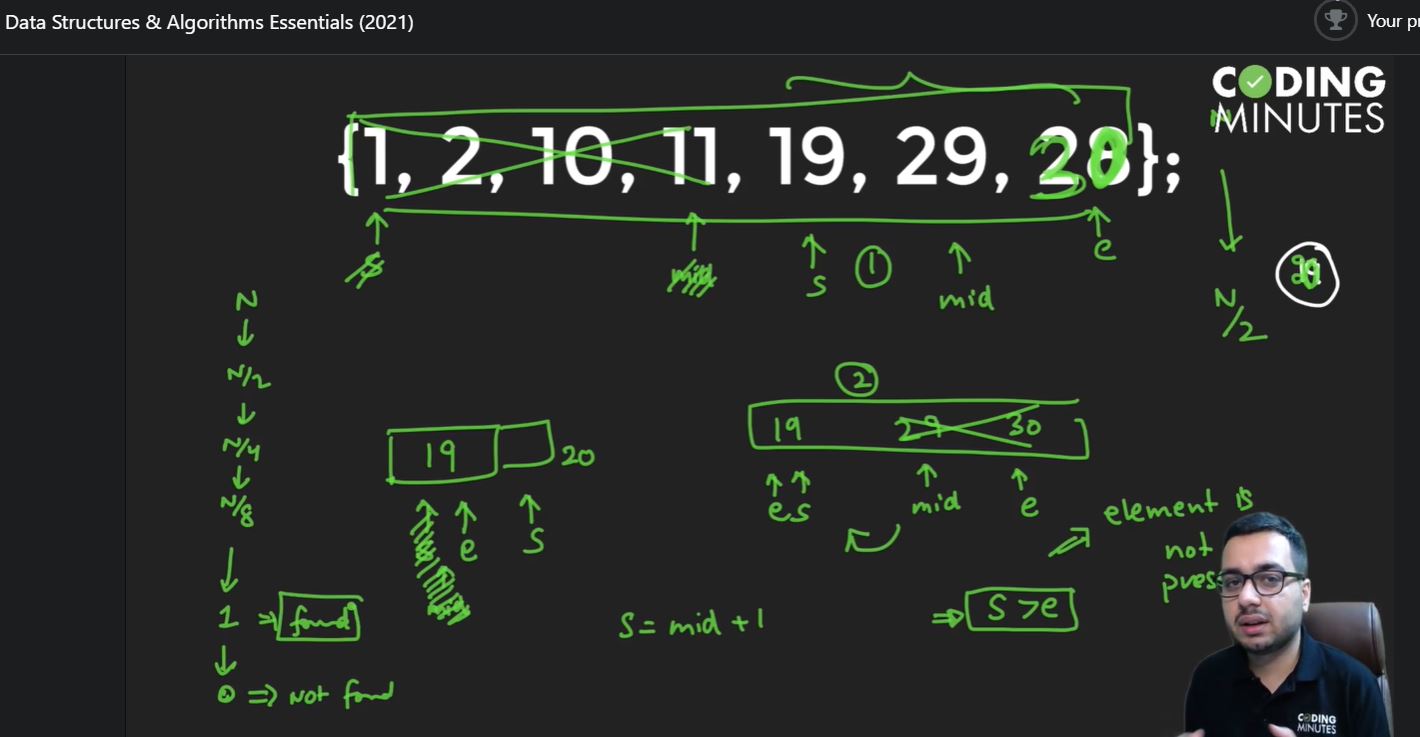 Data Structures & Algorithms Essentials (2021)
Your p
CODING
MINUTES
{1, 2, 10, 11, 19, 29, 30};
s
1
mid
e
N
N/2
N
N/2
N/4
N/8
1 => found
0 => Not found
2
19 29 30
e s mid e
19 20
e s
s = mid + 1
=> s > e
element is
not
pres
CODING
MINUTES